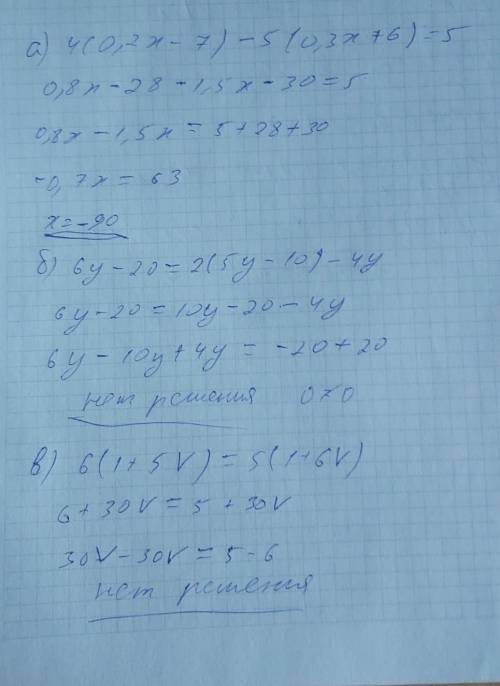 а) 4(0,2x-7)-5(0,3x+6)=5
0,8x-28-1,5x-30=5
0,8x-1,5x=5+28+30
-0,7x=63
x=-90
б) 6y-20=2(5y-10)-4y
6y-20=10y-20-4y
6y-10y+4y=-20+20
нет решения 0≠0
в) 6(1+5V)=5(1+6V)
6+30V=5+30V
30V-30V=5-6
нет решения